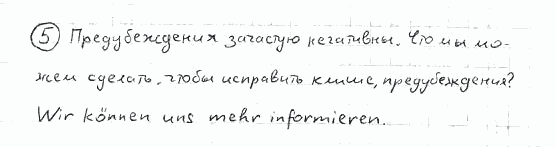 ⑤ Предубеждения зачастую негативны. Что мы мо-
жем сделать, чтобы исправить клише, предубеждения?
Wir können uns mehr informieren.